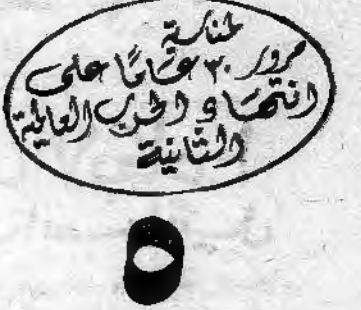 لمناسبة
مرور ٣٠ عامًا على
انتهاء الحرب العالمية
الثانية
٥